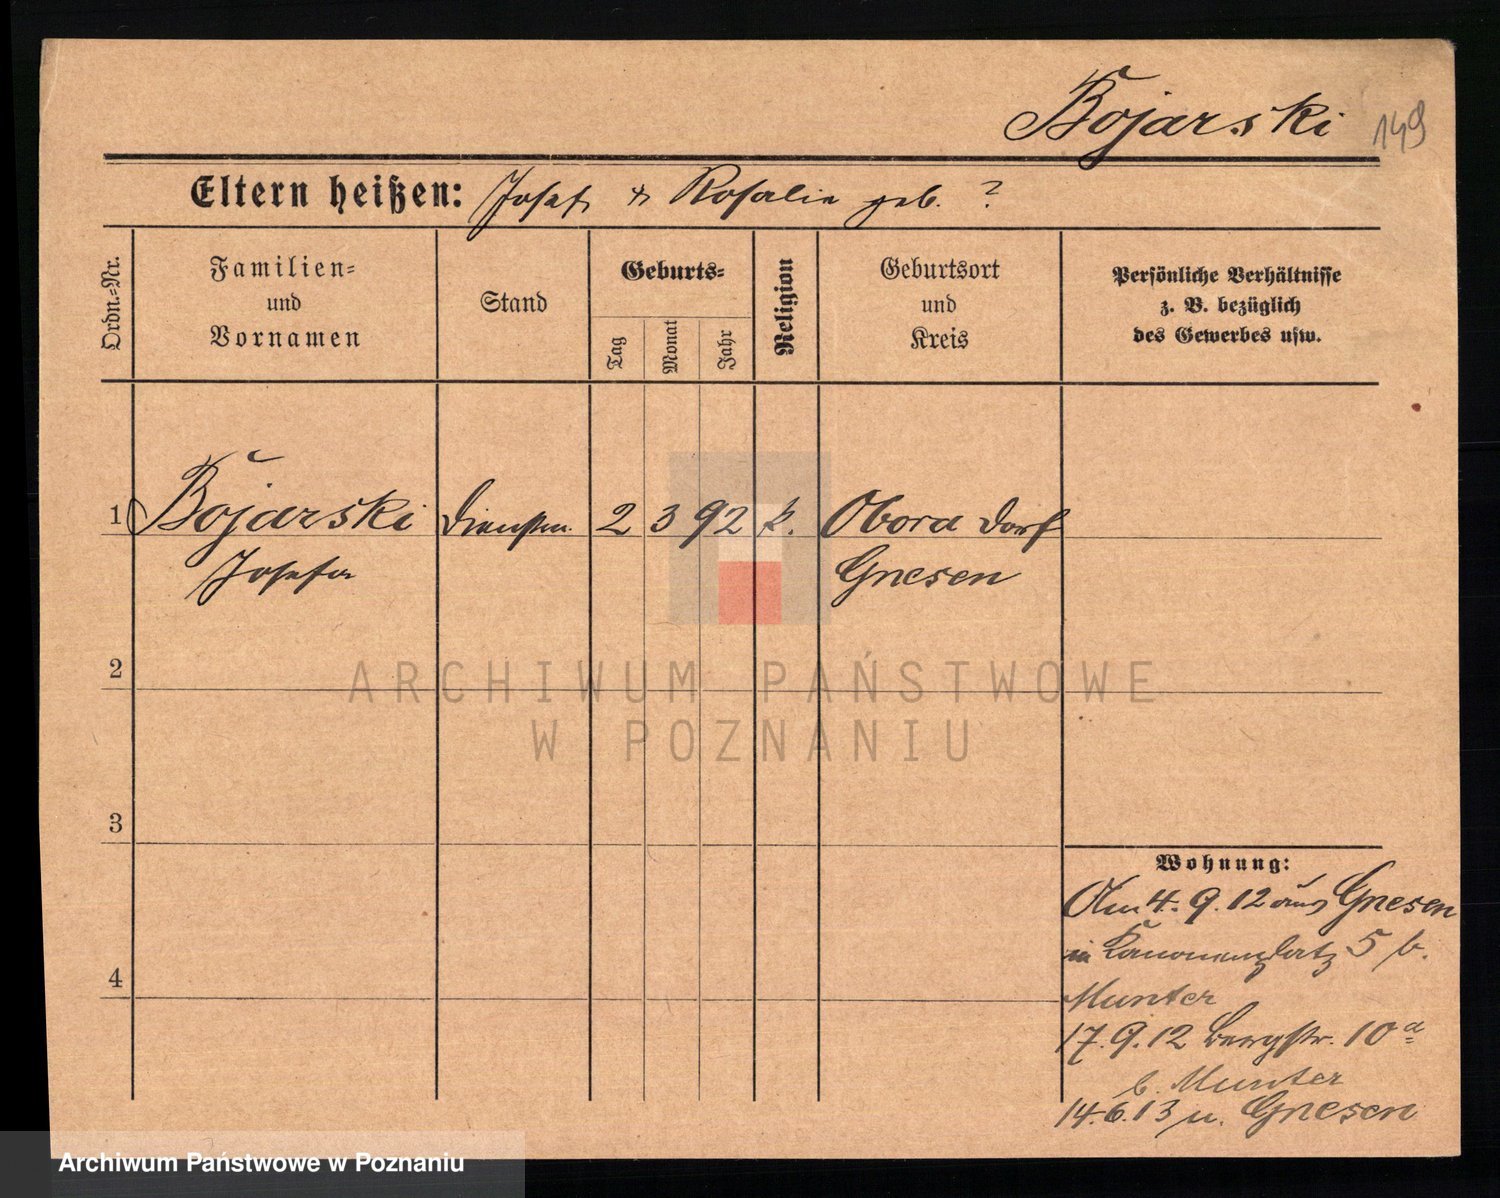 Bojarski 149
Eltern heißen: Josef & Rosalie geb. ?
Ordn.-Nr.
Familien-
und
Vornamen
Stand
Geburts-
Tag
Monat
Jahr
Religion
Geburtsort
und
Kreis
Persönliche Verhältnisse
z. B. bezüglich
des Gewerbes usw.
1 Bojarski Dienstm. 2 3 92 k. Obora Dorf
Josefa Gnesen
2
ARCHIWUM PAŃSTWOWE
W POZNANIU
3
Wohnung:
Am 4. 9. 12 aus Gnesen
in Kanonenplatz 5 b.
4
Munter
17. 9. 12 Bergstr. 10a
b. Munter
14. 6. 13 n. Gnesen
Archiwum Państwowe w Poznaniu